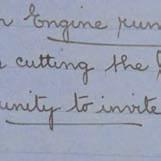 Engine run
cutting the
unity to invite